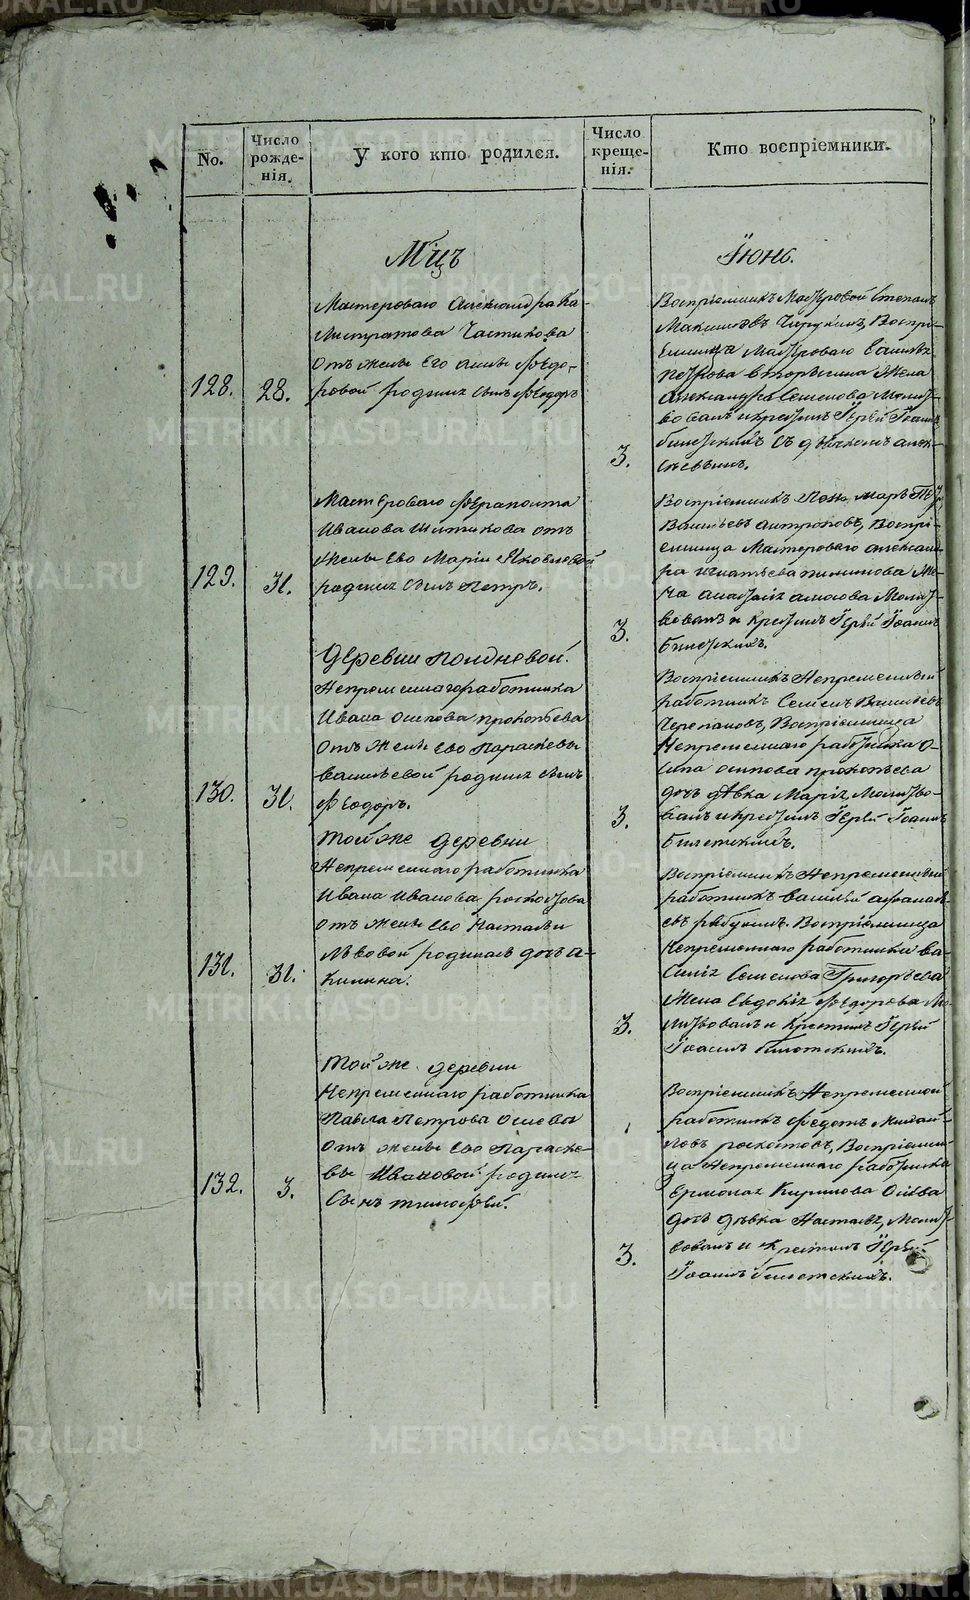 No.
Число рожде-нія.
У кого кто родился.
Число креще-нія.
Кто воспріемники.
Мцъ
Іюнь.
128.
28.
Мастероваго Александра Ка-
листратова Частикова
отъ жены Его Анны Ѳедо-
ровой родился сынъ Ѳеодоръ
3.
Воспріемникъ Мастеровой Степанъ
Максимовъ Воспрі-
емница Мастероваго
Петрова жена
Александра Семенова Молит-
вовалъ и крестилъ Іерей Іоаннъ
Билетскій съ дьячкомъ Алек-
сѣевымъ.
129.
31.
Мастероваго Ѳерапонта
Иванова Шитикова отъ
жены Ево Маріи Яковлевой
родился сынъ Петръ.
3.
Воспріемникъ
Васильевъ Антроповъ, Воспрі-
емница Мастероваго Алексан-
ра Игнатьева же-
на Амосова Молит-
вовалъ и крестилъ Іерей Іоаннъ
Билетскій.
130.
31.
Деревни Полдневой.
Непременнаго работника
Ивана Осипова Прокопьева
отъ жены Ево Параскевы
Васильевой родился сынъ
Ѳеодоръ.
3.
Воспріемникъ Непременный
работникъ Семенъ Васильевъ
Черепановъ, Воспріемница
Непременнаго работника О-
сипа Осипова Прокопьева
дочь дѣвка Марія Молитво-
валъ и крестилъ Іерей Іоаннъ
Билетскій.
131.
31.
Той же деревни
Непременнаго работника
Ивана Иванова
отъ жены Ево Настасьи
Львовой родилась дочь А-
килина.
3.
Воспріемникъ Непременный
работникъ Василей Афанась-
евъ Воспріемница
Непременнаго работника Ва-
силія Семенова Григорьева
жена Евдокія Ѳедорова Мо-
литвовалъ и крестилъ Іерей
Іоаннъ Билетскій.
132.
3.
Той же деревни
Непременнаго работника
Павла Петрова
отъ жены Ево Параске-
вы Ивановой родился
Сынъ Тимоѳей.
3.
Воспріемникъ Непременной
работникъ Ѳедотъ Михай-
ловъ Воспріемни-
ца Непременнаго работника
Ермолая Кирилова
дочь дѣвка Настасья, Молит-
вовалъ и крестилъ Іерей
Іоаннъ Билетскій.
METRIKI.GASO-URAL.RU